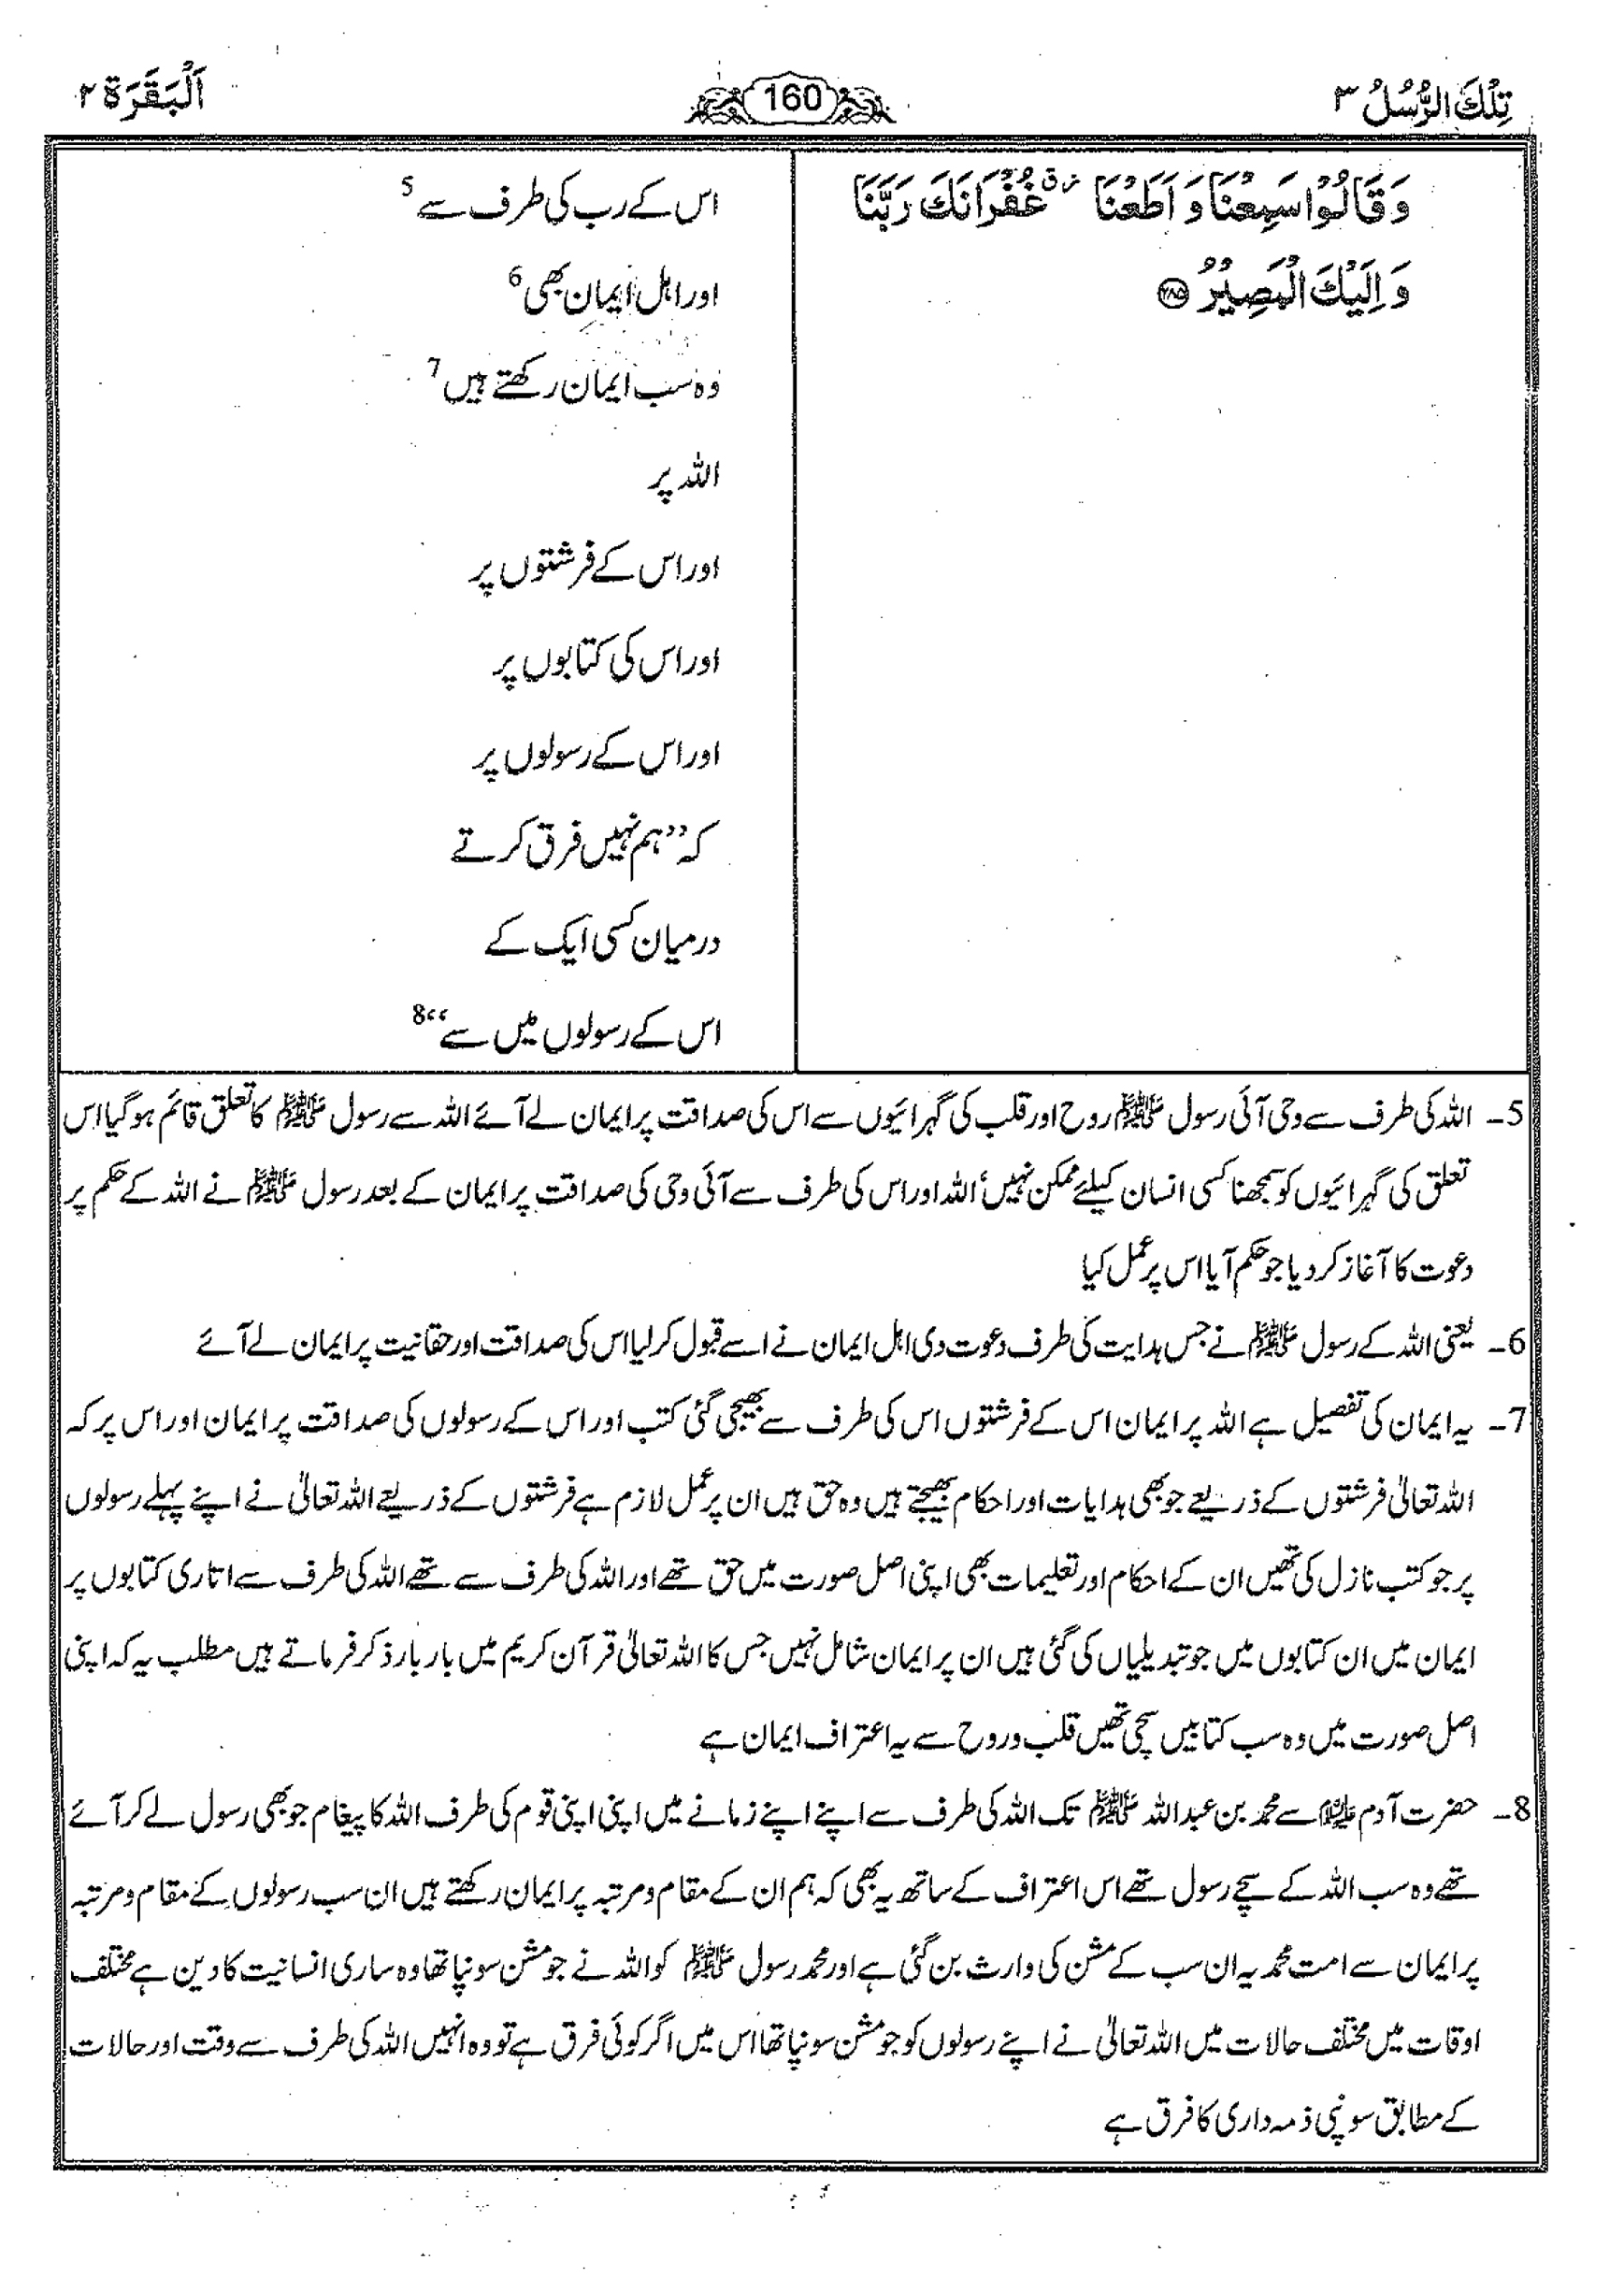 تِلْكَ الرُّسُلُ ٣
160
اَلْبَقَرَة ٢
وَ قَالُوْا سَمِعْنَا وَ اَطَعْنَا ٭۫ غُفْرَانَكَ رَبَّنَا
وَ اِلَيْكَ الْمَصِيْرُ ۝۲۸۵
اس کے رب کی طرف سے 5
اور اہل ایمان بھی 6
وہ سب ایمان رکھتے ہیں 7
اللہ پر
اور اس کے فرشتوں پر
اور اس کی کتابوں پر
اور اس کے رسولوں پر
کہ ’’ہم نہیں فرق کرتے
درمیان کسی ایک کے
اس کے رسولوں میں سے‘‘ 8
5۔ اللہ کی طرف سے وحی آئی رسول ﷺ روح اور قلب کی گہرائیوں سے اس کی صداقت پر ایمان لے آئے اللہ سے رسول ﷺ کا تعلق قائم ہو گیا اس
تعلق کی گہرائیوں کو سمجھنا کسی انسان کیلئے ممکن نہیں‘ اللہ اور اس کی طرف سے آئی وحی کی صداقت پر ایمان کے بعد رسول ﷺ نے اللہ کے حکم پر
دعوت کا آغاز کر دیا جو حکم آیا اس پر عمل کیا
6۔ یعنی اللہ کے رسول ﷺ نے جس ہدایت کی طرف دعوت دی اہل ایمان نے اسے قبول کر لیا اس کی صداقت اور حقانیت پر ایمان لے آئے
7۔ یہ ایمان کی تفصیل ہے اللہ پر ایمان اس کے فرشتوں اس کی طرف سے بھیجی گئی کتب اور اس کے رسولوں کی صداقت پر ایمان اور اس پر کہ
اللہ تعالیٰ فرشتوں کے ذریعے جو بھی ہدایات اور احکام بھیجتے ہیں وہ حق ہیں ان پر عمل لازم ہے فرشتوں کے ذریعے اللہ تعالیٰ نے اپنے پہلے رسولوں
پر جو کتب نازل کی تھیں ان کے احکام اور تعلیمات بھی اپنی اصل صورت میں حق تھے اور اللہ کی طرف سے تھے اللہ کی طرف سے اتاری کتابوں پر
ایمان میں ان کتابوں میں جو تبدیلیاں کی گئی ہیں ان پر ایمان شامل نہیں جس کا اللہ تعالیٰ قرآن کریم میں بار بار ذکر فرماتے ہیں مطلب یہ کہ اپنی
اصل صورت میں وہ سب کتابیں سچی تھیں قلب و روح سے یہ اعتراف ایمان ہے
8۔ حضرت آدم علیہ السلام سے محمد بن عبداللہ ﷺ تک اللہ کی طرف سے اپنے اپنے زمانے میں اپنی اپنی قوم کی طرف اللہ کا پیغام جو بھی رسول لے کر آئے
تھے وہ سب اللہ کے سچے رسول تھے اس اعتراف کے ساتھ یہ بھی کہ ہم ان کے مقام و مرتبہ پر ایمان رکھتے ہیں ان سب رسولوں کے مقام و مرتبہ
پر ایمان سے امت محمدیہ ان سب کے مشن کی وارث بن گئی ہے اور محمد رسول ﷺ کو اللہ نے جو مشن سونپا تھا وہ ساری انسانیت کا دین ہے مختلف
اوقات میں مختلف حالات میں اللہ تعالیٰ نے اپنے رسولوں کو جو مشن سونپا تھا اس میں اگر کوئی فرق ہے تو وہ انہیں اللہ کی طرف سے وقت اور حالات
کے مطابق سونپی ذمہ داری کا فرق ہے